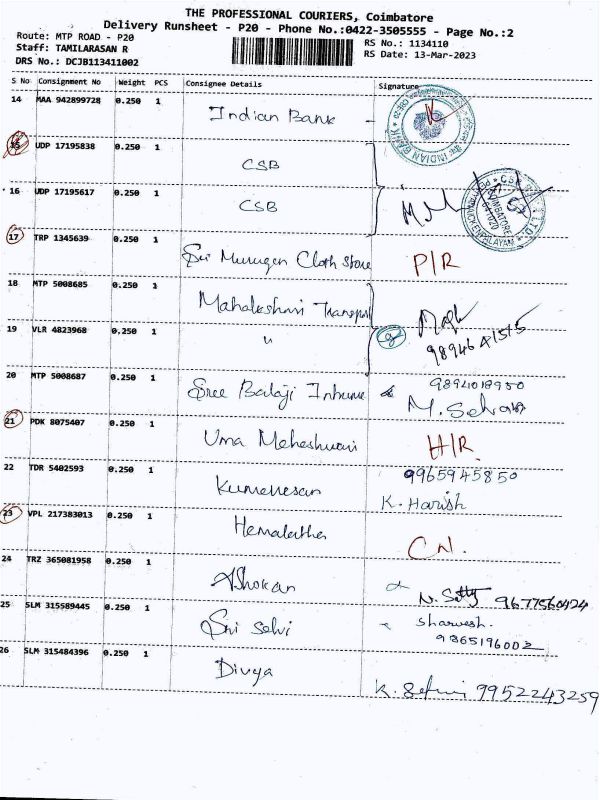 THE PROFESSIONAL COURIERS, Coimbatore
Delivery Runsheet - P20 - Phone No.:0422-3505555 - Page No.:2
Route: MTP ROAD - P20
Staff: TAMILARASAN R
DRS No.: DCJB113411002
RS No.: 1134110
RS Date: 13-Mar-2023
S No Consignment No Weight PCS Consignee Details Signature
14 MAA 942899728 0.250 1 Indian Bank
15 UDP 17195838 0.250 1 CSB
16 UDP 17195617 0.250 1 CSB
17 TRP 1345639 0.250 1 Sri Murugan Cloth Store P/R
18 MTP 5008685 0.250 1 Mahalakshmi Transport
19 VLR 4823968 0.250 1 "
98946 41515
20 MTP 5008687 0.250 1 Sree Balaji 9894018950
M.
21 PDK 8075407 0.250 1 Uma Maheshwari H/R
22 TDR 5402593 0.250 1 Kumaresan 9965945850
K. Harish
23 VPL 217383013 0.250 1 Hemalatha CN.
24 TRZ 365081958 0.250 1 Ashokan N. 9677560424
25 SLM 315589445 0.250 1 Sri Selvi Sharvesh.
9865196002
26 SLM 315484396 0.250 1 Divya K. 9952243259